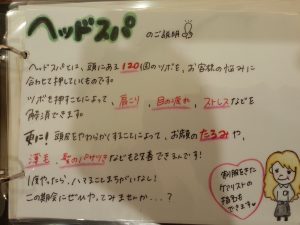 ヘッドスパ のご説明
ヘッドスパとは、頭にある120個のツボを、お客様の悩みに
合わせて押していくものです。
ツボを押すことによって、肩こり、目の疲れ、ストレスなどを
解消できます。
更に!頭皮をやわらかくすることによって、お顔のたるみや、
薄毛、髪のパサつきなども改善できるんです!
1度やったら、ハマることまちがいなし!
この期会にぜひやってみませんか...?
制服をきた
ケアリストの
指名も
できます